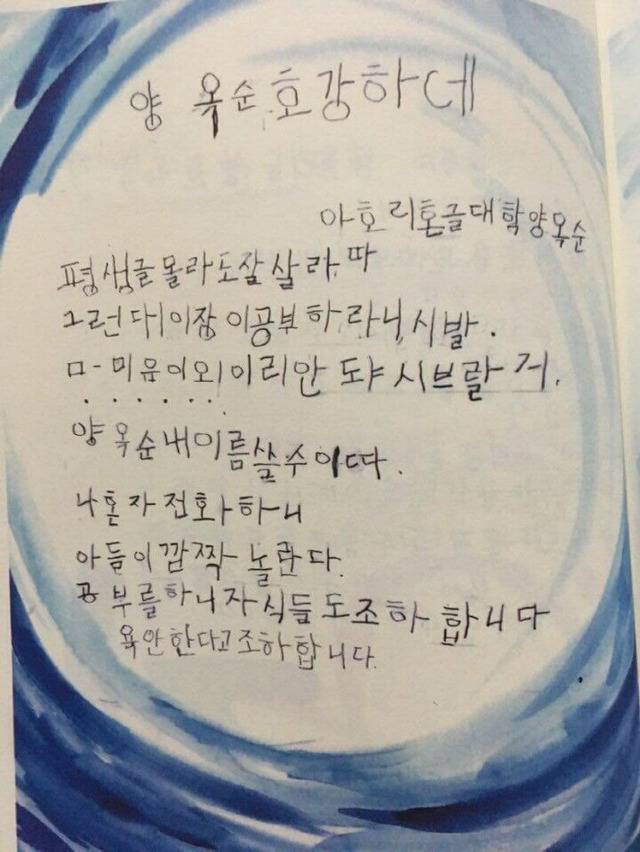 양 옥순호강하데
아호리혼글대학양옥순
평생글몰라도잘살라따
그런대이장이공부하라니,시발.
마-미음이외이리안 도냐 시브랄거.
. . . . . .
양옥순내이름쓸수이따.
나혼자전화하니
아들이깜짝놀란다.
공부를하니자식들도조하합니다
욕안한다고조하합니다.